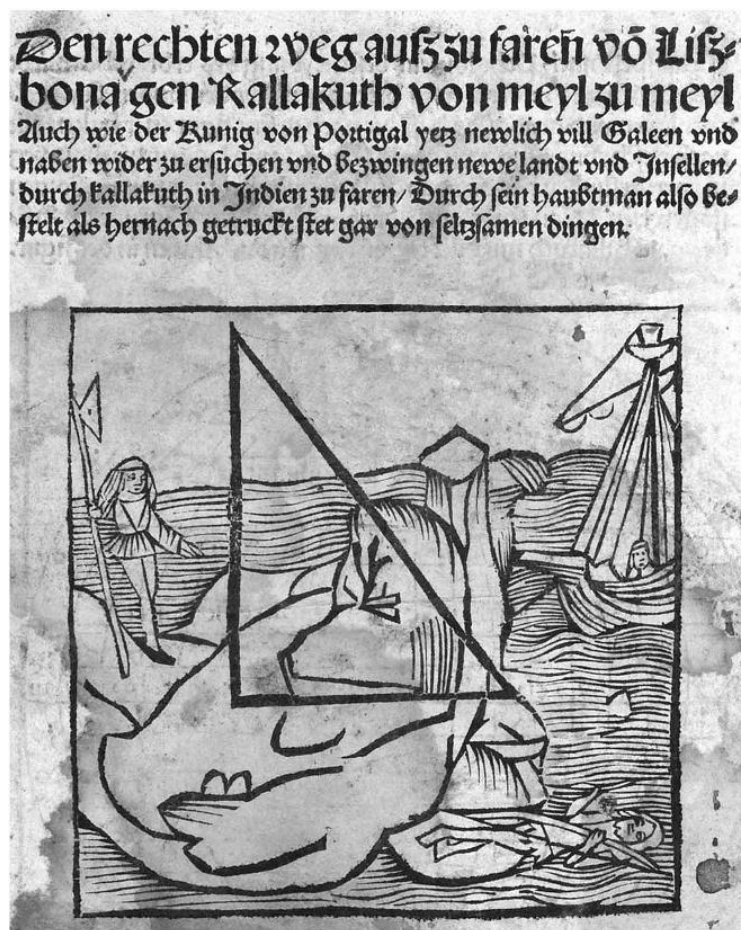 Den rechten weg ausz zu faren̄ vō Lisz-
bona gen Kallakuth von meyl zu meyl
Auch wie der Kunig von Portigal yetz newlich vill Galeen vnd
naben wider zu ersuchen vnd bezwingen newe landt vnd Jnsellen/
durch kallakuth in Jndien zu faren/ Durch sein haubtman also be-
stelt als hernach getruckt stet gar von seltzsamen dingen.